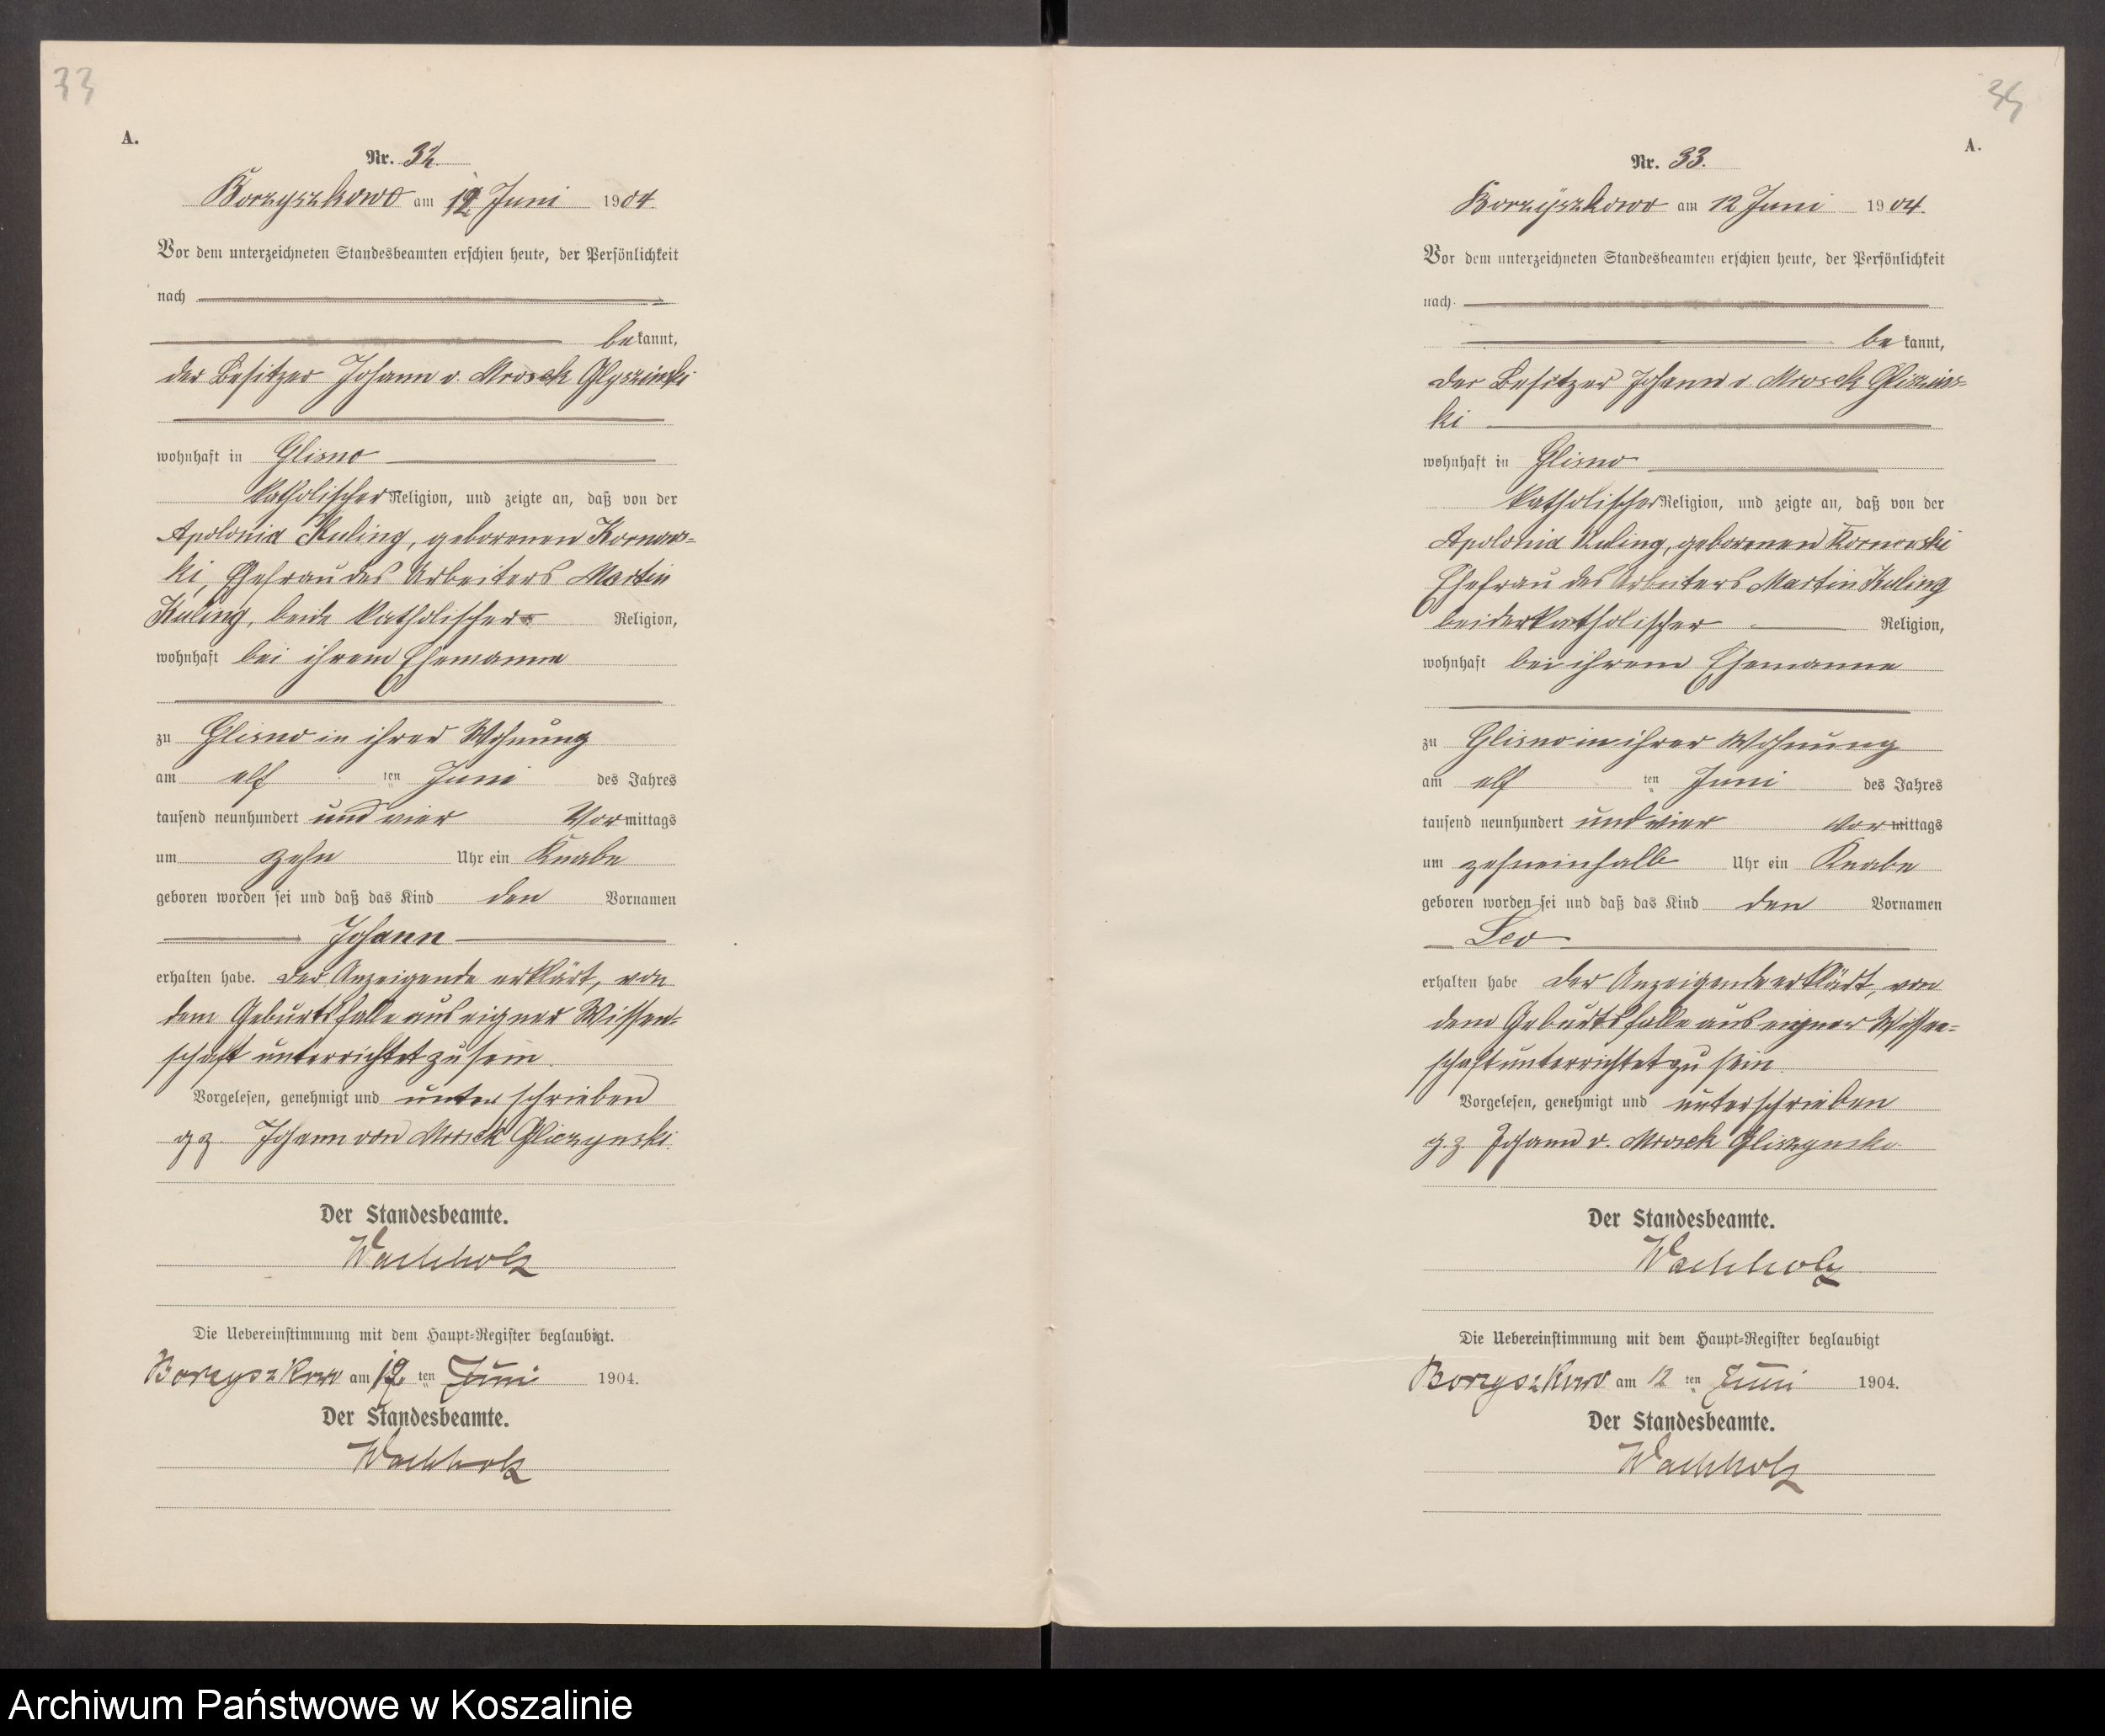 33
A.
Nr. 32.
Borzyszkowo am 12 Juni 1904.
Vor dem unterzeichneten Standesbeamten erschien heute, der Persönlichkeit
nach
bekannt,
der Besitzer Johann v. Mrosek Glyszinski
wohnhaft in Glisno
katholischer Religion, und zeigte an, daß von der
Apolonia Kuling, geborenen Kornows-
ki, Ehefrau des Arbeiters Martin
Kuling, beide katholischer Religion,
wohnhaft bei ihrem Ehemanne
zu Glisno in ihrer Wohnung
am elf ten Juni des Jahres
tausend neunhundert und vier Vormittags
um zehn Uhr ein Knabe
geboren worden sei und daß das Kind den Vornamen
Johann
erhalten habe. Der Anzeigende erklärt, von
dem Geburtsfalle aus eigner Wissen-
schaft unterrichtet zu sein.
Vorgelesen, genehmigt und unterschrieben
gz. Johann von Mrosek Gliszynski.
Der Standesbeamte.
Wachholz
Die Uebereinstimmung mit dem Haupt-Register beglaubigt.
Borzyszkowo am 12 ten Juni 1904.
Der Standesbeamte.
Wachholz
34
A.
Nr. 33.
Borzyszkowo am 12 Juni 1904.
Vor dem unterzeichneten Standesbeamten erschien heute, der Persönlichkeit
nach
bekannt,
der Besitzer Johann v. Mrosek Gliszins-
ki
wohnhaft in Glisno
katholischer Religion, und zeigte an, daß von der
Apolonia Kuling, geborenen Kornowski
Ehefrau des Arbeiters Martin Kuling
beider katholischer Religion,
wohnhaft bei ihrem Ehemanne
zu Glisno in ihrer Wohnung
am elf ten Juni des Jahres
tausend neunhundert und vier Vormittags
um zehneinhalb Uhr ein Knabe
geboren worden sei und daß das Kind den Vornamen
Leo
erhalten habe Der Anzeigende erklärt, von
dem Geburtsfalle aus eigner Wissen-
schaft unterrichtet zu sein.
Vorgelesen, genehmigt und unterschrieben
g.z. Johann v. Mrosek Gliszynski
Der Standesbeamte.
Wachholz
Die Uebereinstimmung mit dem Haupt-Register beglaubigt
Borzyszkowo am 12 ten Juni 1904.
Der Standesbeamte.
Wachholz
Archiwum Państwowe w Koszalinie